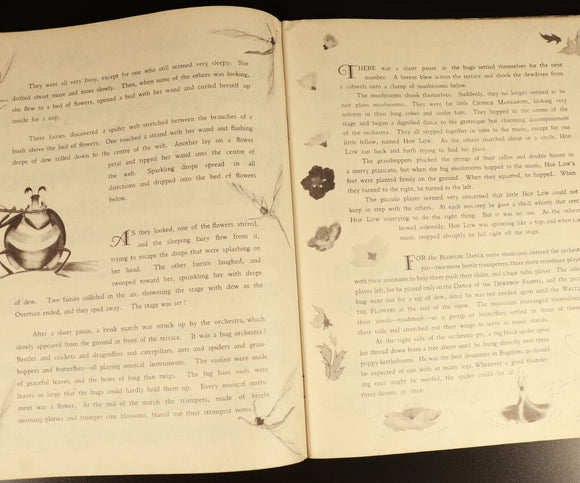 They were all very busy, except for one who still seemed very sleepy. She
drifted about more and more slowly. Then, when none of the others was looking,
she flew to a bed of flowers, opened a bud with her wand and curled herself up
inside for a nap.
Three fairies discovered a spider web stretched between the branches of a
bush above the bed of flowers. One touched a strand with her wand and flashing
drops of dew rolled down to the centre of the web. Another lay on a flower
petal and tipped her wand into the centre of
the web. Sparkling drops spread in all
directions and dripped into the bed of flowers
below.
As they looked, one of the flowers stirred,
and the sleeping fairy flew from it,
trying to escape the drops that were splashing on
her head. The other fairies laughed, and
swooped toward her, sprinkling her with drops
of dew. Two fairies collided in the air, showering the stage with dew as the
Overture ended, and they sped away. The stage was set!
After a short pause, a brisk march was struck up by the orchestra, which
slowly appeared from the ground in front of the terrace. It was a bug orchestra!
Beetles and crickets and dragonflies and caterpillars, ants and spiders and grass-
hoppers and butterflies—all playing musical instruments. The violins were made
of graceful leaves, and the bows of long thin twigs. The big bass viols were
leaves so large that the bugs could hardly hold them up. Every musical instru-
ment was a flower. At the end of the march the trumpets, made of bright
morning-glories and trumpet-vine blossoms, blared out their strongest notes.
There was a short pause as the bugs settled themselves for the next
number. A breeze blew across the terrace and shook the dewdrops from
a cobweb onto a clump of mushrooms below.
The mushrooms shook themselves. Suddenly, they no longer seemed to be
just plain mushrooms. They were fat little Chinese Mandarins, looking very
solemn in their long robes and coolie hats. They hopped to the centre of the
stage and began a dignified dance to the grotesque but charming accompaniment
of the orchestra. They all stepped together in time to the music, except for one
little fellow, named Hop Low. As the others marched about in a circle, Hop
Low ran back and forth trying to find his place.
The grasshoppers plucked the strings of their cellos and double basses in
a merry pizzicato, but when the big mushrooms hopped to the music, Hop Low's
feet were planted firmly on the ground. When they squatted, he hopped. When
they turned to the right, he turned to the left.
The piccolo player seemed very concerned that little Hop Low could not
keep in step with the others. At each mis-step he gave a shrill whistle that sent
Hop Low scurrying to do the right thing. But it was no use. As the others
bowed solemnly, Hop Low was spinning like a top, and when the
music stopped abruptly he fell right off the stage.
For the Blossom Dance more musicians entered the orchestra
pit—two more beetle trumpeters, three more trombone players
with their assistants to help them push their slides, and a bass tuba player. The celesta
player left, for he played only in the Dance of the Dewdrop Fairies, and the piccolo
bug went out for a sip of dew, since he was not needed again until the Waltz of
the Flowers at the end of the show. The musicians rearranged themselves
their stools—toadstools—as a group of butterflies settled in front of them
their tails and stretched out their wings to serve as music stands.
At the right side of the orchestra pit, a big black spider spun
his thread down from a tree above until he hung directly over three
poppy kettledrums. He was the best drummer in Bugdom, as should
be expected of one with so many legs. Whenever a good thunder-
ing roar might be needed, the spider could hit all
three drums at once.